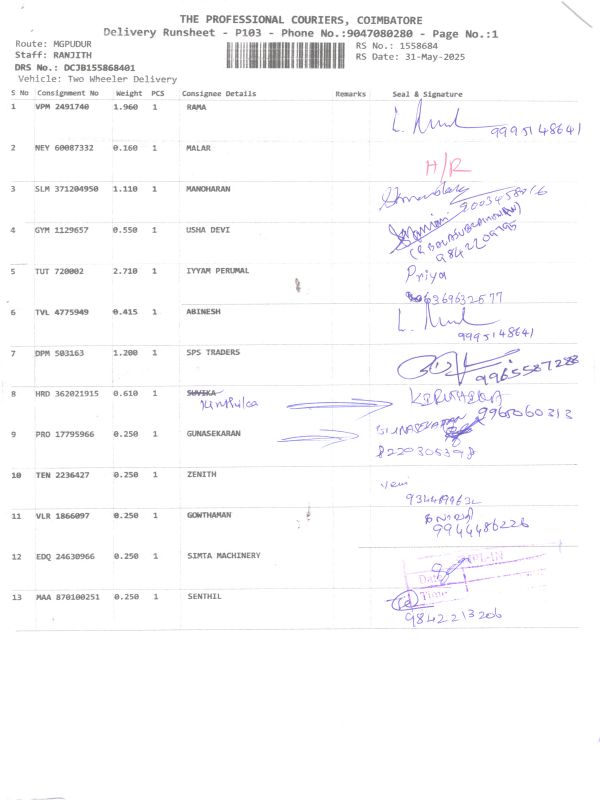 THE PROFESSIONAL COURIERS, COIMBATORE
Delivery Runsheet - P103 - Phone No.:9047080280 - Page No.:1
Route: MGPUDUR
Staff: RANJITH
DRS No.: DCJB155868401
Vehicle: Two Wheeler Delivery
RS No.: 1558684
RS Date: 31-May-2025
S No Consignment No Weight PCS Consignee Details Remarks Seal & Signature
1 VPM 2491740 1.960 1 RAMA
99951 48641
2 NEY 60087332 0.160 1 MALAR
H/R
3 SLM 371204950 1.110 1 MANOHARAN
4 GYM 1129657 0.550 1 USHA DEVI
9842209795
5 TUT 720002 2.710 1 IYYAM PERUMAL
Priya
6369632577
6 TVL 4775949 0.415 1 ABINESH
9995148641
7 DPM 503163 1.200 1 SPS TRADERS
9965587288
8 HRD 362021915 0.610 1 SUVIKA
9965060313
9 PRO 17795966 0.250 1 GUNASEKARAN
8220305398
10 TEN 2236427 0.250 1 ZENITH
Veni
11 VLR 1866097 0.250 1 GOWTHAMAN
9944486226
12 EDQ 24630966 0.250 1 SIMTA MACHINERY
Date
Time
13 MAA 870100251 0.250 1 SENTHIL
9842213206